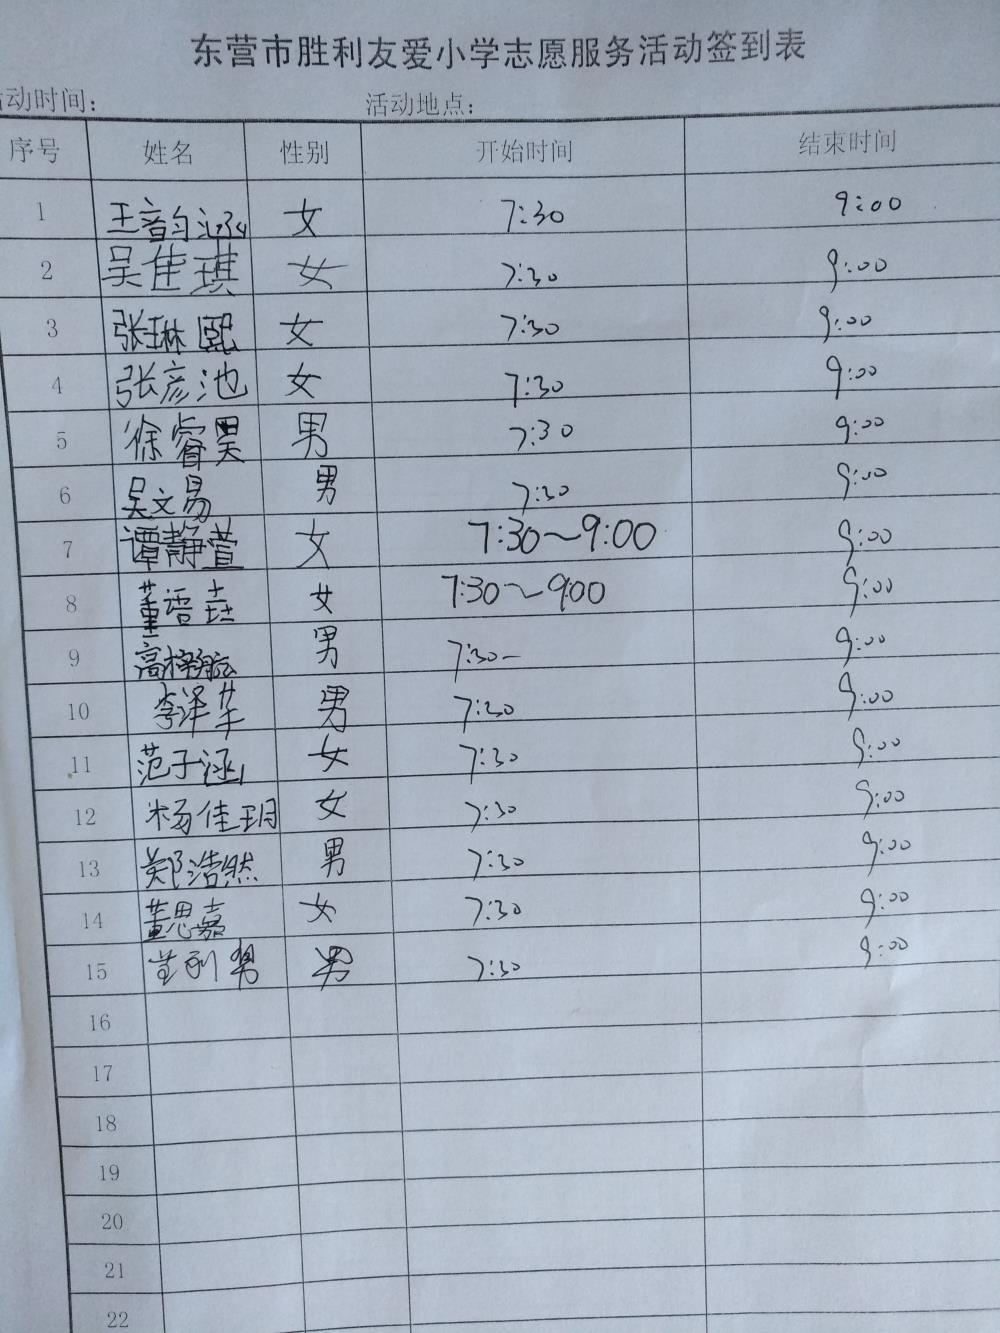 东营市胜利友爱小学志愿服务活动签到表
活动时间： 活动地点：
序号 姓名 性别 开始时间 结束时间
1 王音匀涵 女 7:30 9:00
2 吴佳琪 女 7:30 9:00
3 张琳熙 女 7:30 9:00
4 张彦池 女 7:30 9:00
5 徐睿昊 男 7:30 9:00
6 吴文易 男 7:30 9:00
7 谭静萱 女 7:30～9:00 9:00
8 董语垚 女 7:30～9:00 9:00
9 男 7:30- 9:00
10 李泽 男 7:30 9:00
11 范子涵 女 7:30 9:00
12 杨佳玥 女 7:30 9:00
13 郑浩然 男 7:30 9:00
14 董思嘉 女 7:30 9:00
15 男 7:30 9:00
16
17
18
19
20
21
22